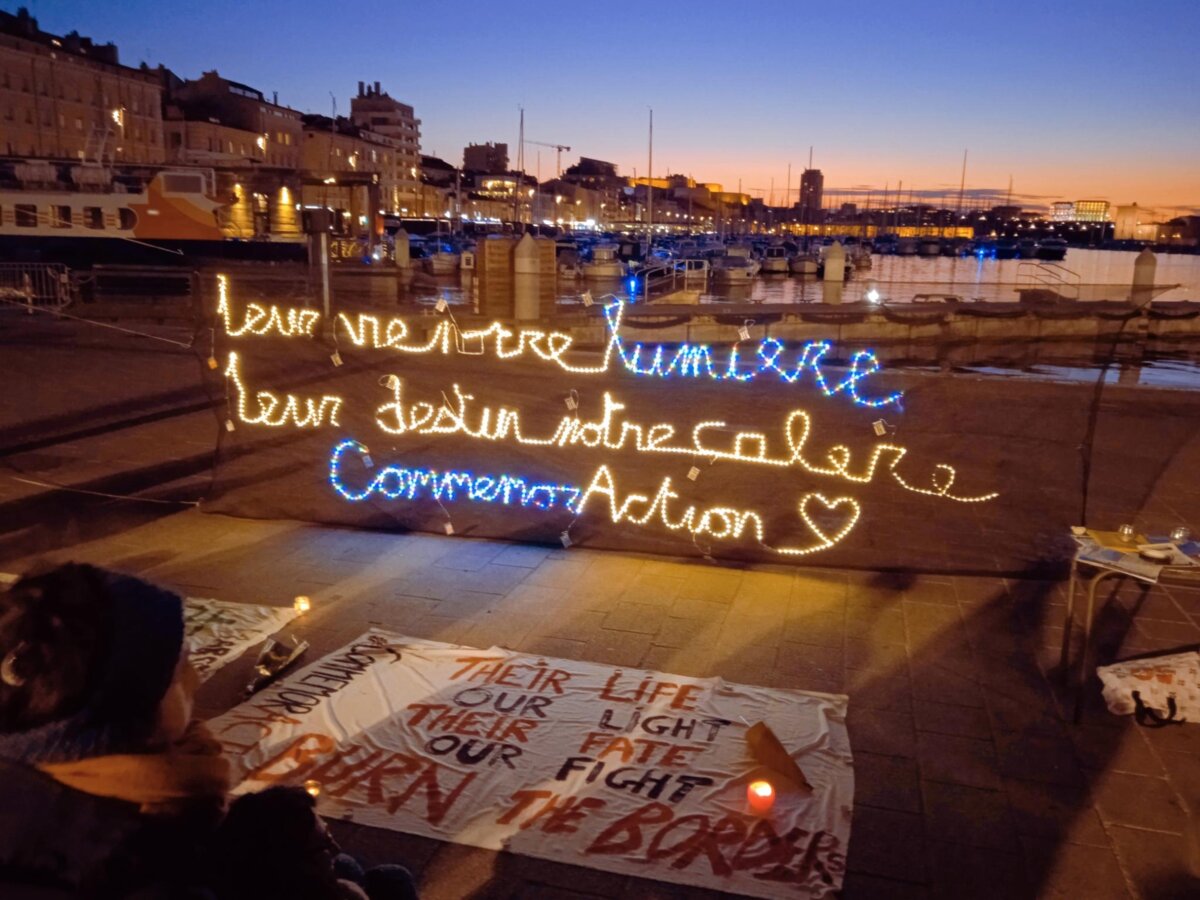 leur vie notre lumiere
leur destin notre colere
CommemorAction
#COMMEMOR
THEIR LIFE
OUR LIGHT
THEIR FATE
OUR FIGHT
BURN THE BORDERS